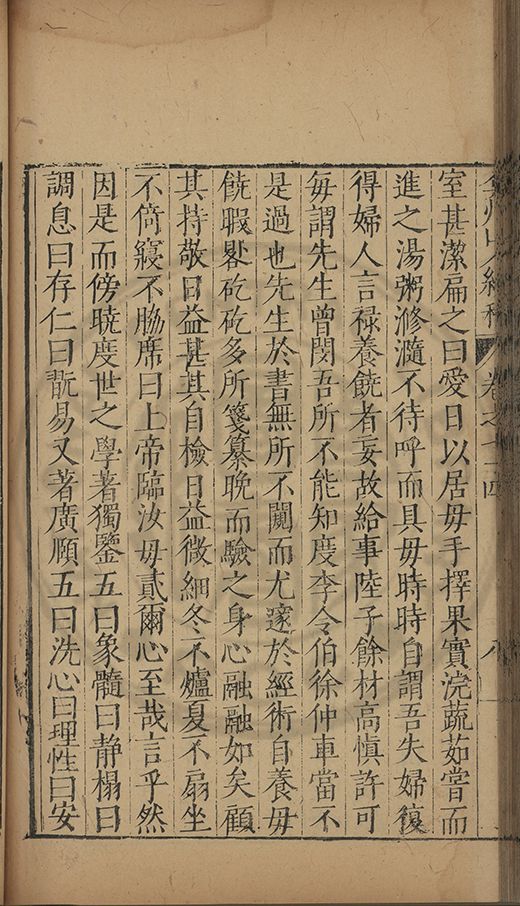 弇州山人續稿 卷之七十四 八
室甚潔扁之曰愛日以居毋手擇果實浣蔬茹嘗而
進之湯粥滫瀡不待呼而具毋時時自謂吾失婦復
得婦人言祿養饒者妄故給事陸子餘材高慎許可
每謂先生曾閔吾所不能知度李令伯徐仲車當不
是過也先生於書無所不闚而尤邃於經術自養毋
饒暇畧矻矻多所箋纂晚而驗之身心融融如矣顧
其持敬日益甚其自檢日益微細冬不爐夏不扇坐
不倚寢不脇席曰上帝臨汝毋貳爾心至哉言乎然
因是而傍曉度世之學著獨鑒五曰象髓曰静榻曰
調息曰存仁曰翫易又著廣願五曰洗心曰理性曰安